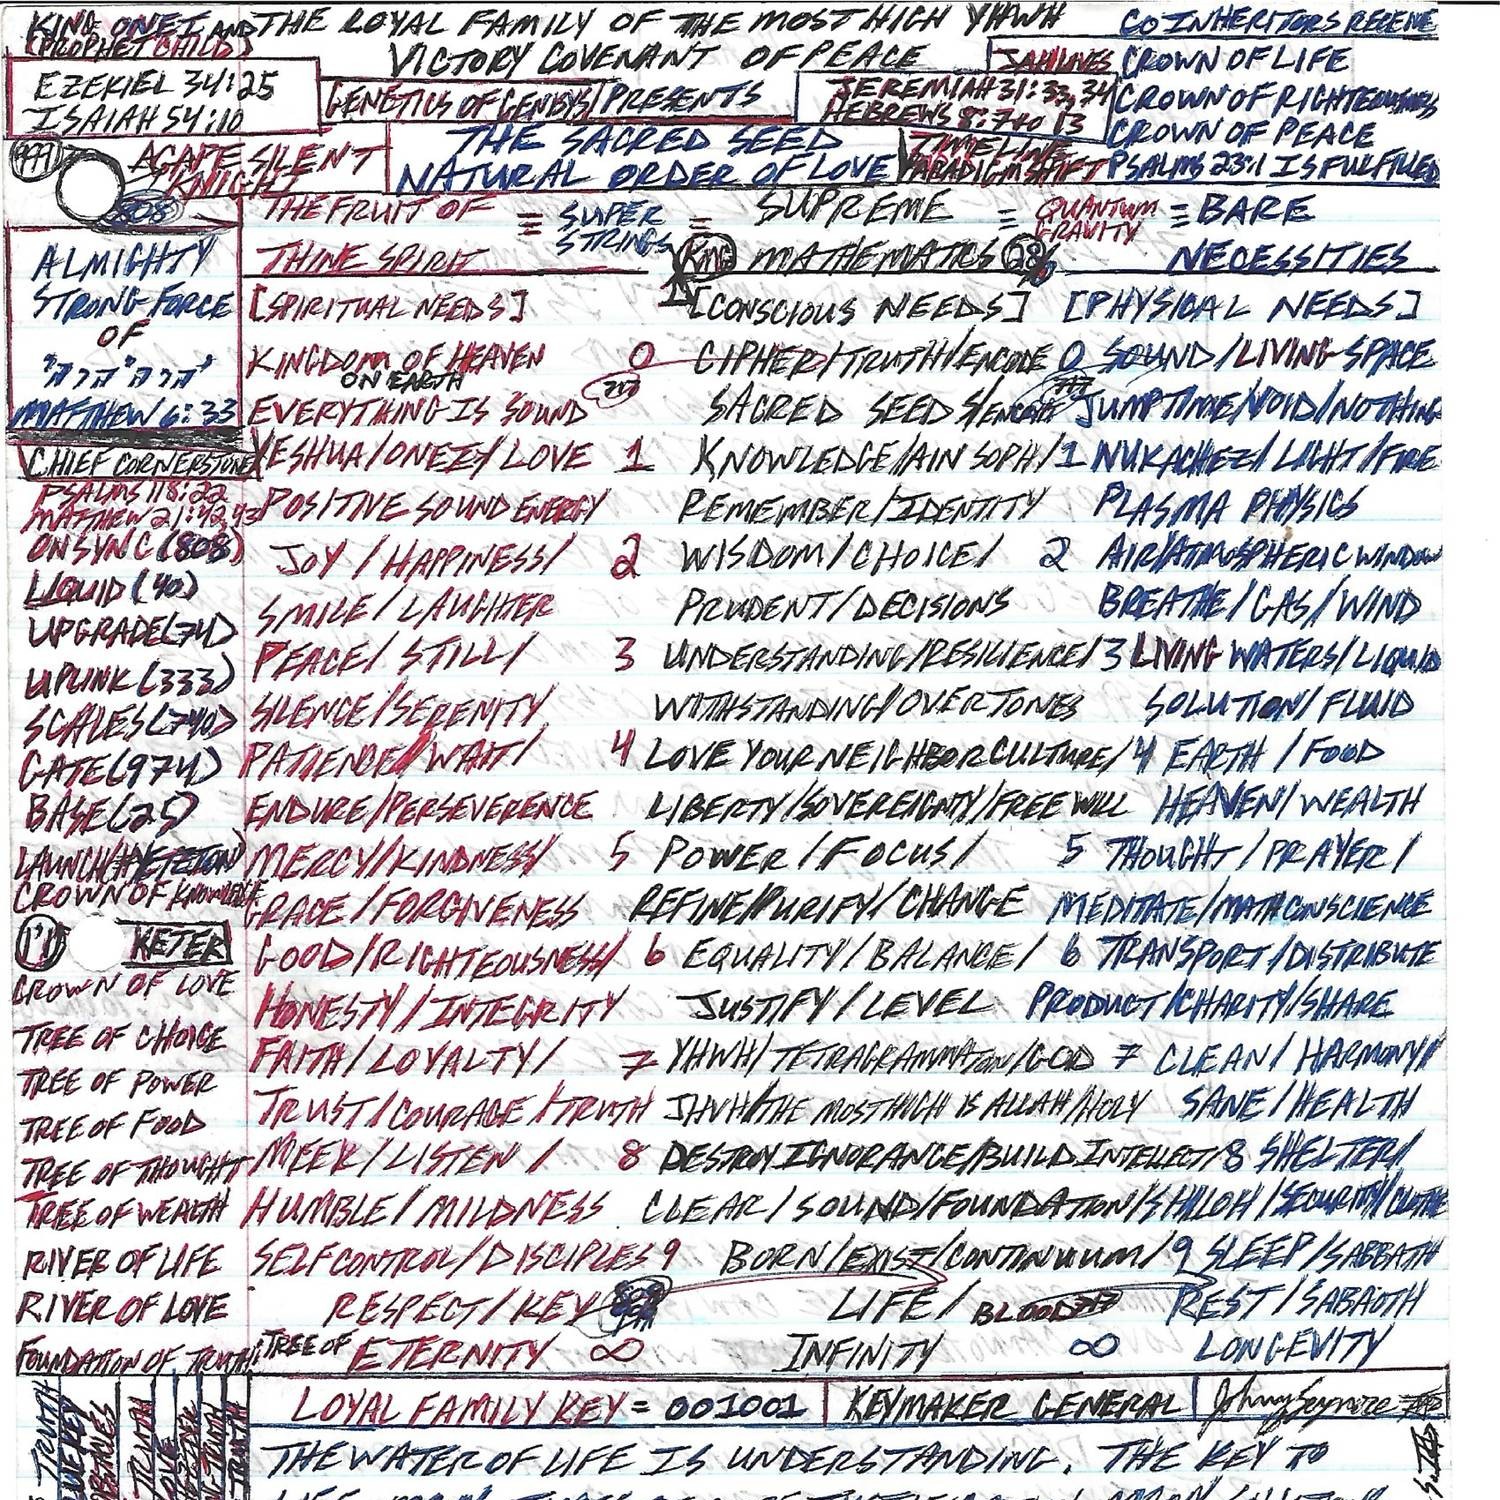 KING ONEZ AND THE LOYAL FAMILY OF THE MOST HIGH YHWH CO INHERITORS RECEIVE
[PROPHET CHILD] VICTORY COVENANT OF PEACE JAH LIVES CROWN OF LIFE
EZEKIEL 34:25
ISAIAH 54:10
GENETICS OF GENESYS PRESENTS
JEREMIAH 31:33,34
HEBREWS 8:7 to 13
CROWN OF RIGHTEOUSNESS
CROWN OF PEACE
PSALMS 23:1 IS FULFILLED
AGAPE SILENT
KNIGHT
THE SACRED SEED
NATURAL ORDER OF LOVE
TIMELINE
PARADIGM SHIFT
808
ALMIGHTY
STRONG FORCE
OF
"יהוה"
MATTHEW 6:33
THE FRUIT OF ≡ SUPER = SUPREME = QUANTUM ≡ BARE
STRINGS GRAVITY
THINE SPIRIT KING MATHEMATICS NECESSITIES
[SPIRITUAL NEEDS] [CONSCIOUS NEEDS] [PHYSICAL NEEDS]
KINGDOM OF HEAVEN 0 CIPHER/TRUTH/ENCODE 0 SOUND/LIVING SPACE
ON EARTH
EVERYTHING IS SOUND 717 SACRED SEEDS/ 717 JUMPTIME/VOID/NOTHING
CHIEF CORNERSTONE
YESHUA/ONEZY/LOVE 1 KNOWLEDGE/AIN SOPH/ 1 NUKACHEZ/LIGHT/FIRE
PSALMS 118:22
MATTHEW 21:42,43
POSITIVE SOUND ENERGY REMEMBER/IDENTITY PLASMA PHYSICS
ONSYNC (808)
JOY/HAPPINESS/ 2 WISDOM/CHOICE/ 2 AIR/ATMOSPHERIC WINDOW
LIQUID (40)
SMILE/LAUGHTER PRUDENT/DECISIONS BREATHE/GAS/WIND
UPGRADE (74)
PEACE/STILL/ 3 UNDERSTANDING/RESILIENCE/ 3 LIVING WATERS/LIQUID
UPLINK (333)
SCALES (740)
SILENCE/SERENITY WITHSTANDING/OVERTONES SOLUTION/FLUID
GATE (974)
PATIENCE/WAIT/ 4 LOVE YOUR NEIGHBOR CULTURE/ 4 EARTH/FOOD
BASE (25)
ENDURE/PERSEVERENCE LIBERTY/SOVEREIGNTY/FREE WILL HEAVEN/WEALTH
MERCY/KINDNESS/ 5 POWER/FOCUS/ 5 THOUGHT/PRAYER/
CROWN OF KNOWLEDGE
GRACE/FORGIVENESS REFINE/PURIFY/CHANGE MEDITATE/MATH CONSCIENCE
KETER
GOOD/RIGHTEOUSNESS/ 6 EQUALITY/BALANCE/ 6 TRANSPORT/DISTRIBUTE
CROWN OF LOVE
HONESTY/INTEGRITY JUSTIFY/LEVEL PRODUCT/CHARITY/SHARE
TREE OF CHOICE
FAITH/LOYALTY/ 7 YHWH/TETRAGRAMMATON/GOD 7 CLEAN/HARMONY/
TREE OF POWER
TREE OF FOOD
TRUST/COURAGE/TRUTH JHVH/THE MOST HIGH IS ALLAH/HOLY SANE/HEALTH
TREE OF THOUGHT
MEEK/LISTEN/ 8 DESTROY IGNORANCE/BUILD INTELLECT/ 8 SHELTER/
TREE OF WEALTH
HUMBLE/MILDNESS CLEAR/SOUND/FOUNDATION/SHILOH/SECURITY/CLOTHE
RIVER OF LIFE
SELF CONTROL/DISCIPLES 9 BORN/EXIST/CONTINUUM/ 9 SLEEP/SABBATH
RIVER OF LOVE
RESPECT/KEY LIFE/BLOOD 717 REST/SABAOTH
FOUNDATION OF TRUTH: TREE OF ETERNITY ∞ INFINITY ∞ LONGEVITY
LOYAL FAMILY KEY = 001001 KEYMAKER GENERAL Johnny Seymore
THE WATER OF LIFE IS UNDERSTANDING. THE KEY TO